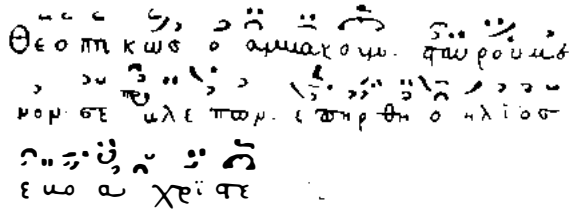 Θεοπηκωσ ο αμβακουμ. σταυρούμε
νον. σε βλεπων. επηρθη ο ηλϊοσ
εβο α χρϊστε